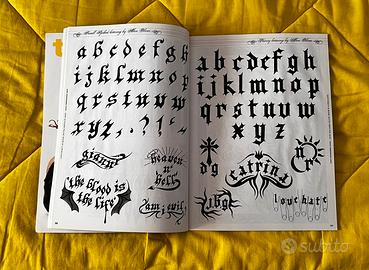 Small Gothic lettering by
a b c d e f g h
i j k l m n o p
q r s t u v w
x y z , . ? ! ' -
gianni
heaven
n'
hell
the blood is
the life
I am evil
lettering by
a b c d e f g h
i j k l m n o p
q r s t u v w
x y z
dg
catrina
nr
love hate
subito